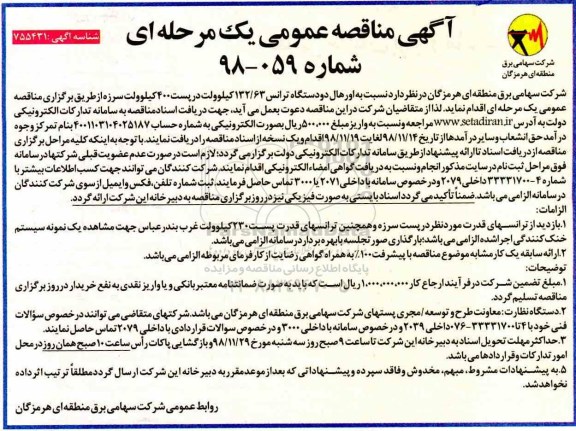 شرکت سهامی برق
منطقه‌ای هرمزگان
آگهی مناقصه عمومی یک مرحله‌ای
شماره ۰۵۹-۹۸
شناسه آگهی: ۷۵۵۴۳۱
شرکت سهامی برق منطقه‌ای هرمزگان در نظر دارد نسبت به اورهال دو دستگاه ترانس ۱۳۲/۶۳ کیلوولت در پست ۴۰۰ کیلوولت سرزه از طریق برگزاری مناقصه
عمومی یک مرحله ای اقدام نماید. لذا از متقاضیان شرکت در این مناقصه دعوت بعمل می آید، جهت دریافت اسناد مناقصه به سامانه تدارکات الکترونیکی
دولت به آدرس www.setadiran.ir مراجعه و نسبت به واریز مبلغ ۵۰۰,۰۰۰ ریال بصورت الکترونیکی به شماره حساب ۴۰۰۱۱۰۳۱۰۴۰۲۵۱۸۷ بنام تمرکز وجوه
درآمد حق انشعاب و سایر درآمدها از تاریخ ۹۸/۱۱/۱۴ لغایت ۹۸/۱۱/۱۹ اقدام و یک نسخه از اسناد مناقصه را دریافت نمایند. با توجه به اینکه کلیه مراحل برگزاری
مناقصه از دریافت اسناد تا ارائه پیشنهاد از طریق سامانه تدارکات الکترونیکی دولت برگزار می گردد؛ لازم است در صورت عدم عضویت قبلی شرکتها در سامانه
فوق مراحل ثبت نام در سایت مذکور انجام و نسبت به دریافت گواهی امضاء الکترونیکی اقدام نمایند. شرکت کنندگان می توانند جهت کسب اطلاعات بیشتر با
شماره ۴-۳۳۳۳۱۷۰۰ داخلی ۲۰۷۹ و در خصوص سامانه با داخلی ۲۰۷۱ یا ۳۰۰۰ تماس حاصل فرمایند. ثبت شماره تلفن، فکس و ایمیل از سوی شرکت کنندگان
در سامانه الزامی می باشد. ضمناً تأکید می گردد اسناد بایستی به صورت فیزیکی نیز در روز برگزاری مناقصه به دبیرخانه این شرکت ارائه گردد.
الزامات:
۱. بازدید از ترانسهای قدرت مورد نظر در پست سرزه و همچنین ترانسهای قدرت پست ۲۳۰ کیلوولت غرب بندرعباس جهت مشاهده یک نمونه سیستم
خنک کنندگی اجرا شده الزام می باشد؛ بارگذاری صورتجلسه با بهره بردار در سامانه الزامی می باشد.
۲. ارائه سابقه یک کار مشابه موضوع مناقصه با پیشرفت ۱۰۰٪ به همراه گواهی رضایت از کارفرمای مربوطه الزامی می باشد.
پایگاه اطلاع رسانی مناقصه و مزایده
توضیحات:
۱. مبلغ تضمین شرکت در فرآیند ارجاع کار ۱,۰۰۰,۰۰۰,۰۰۰ ریال است که باید به صورت ضمانتنامه معتبر بانکی و یا واریز نقدی به نفع خریدار در روز برگزاری
مناقصه تسلیم گردد.
۲. دستگاه نظارت: معاونت طرح و توسعه / مجری پستهای شرکت سهامی برق منطقه ای هرمزگان می باشد. شرکتهای متقاضی می توانند در خصوص سؤالات
فنی خود با ۴ تا ۳۳۳۳۱۷۰۰-۰۷۶ داخلی ۲۰۳۹ و در خصوص سامانه با داخلی ۳۰۰۰ و در خصوص سوالات قراردادی با داخلی ۲۰۷۹ تماس حاصل نمایند.
۳. حداکثر مهلت تحویل اسناد به دبیرخانه این شرکت تا ساعت ۹ صبح روز سه شنبه مورخ ۹۸/۱۱/۲۹ و بازگشایی پاکات رأس ساعت ۱۰ صبح همان روز در محل
امور تدارکات و قراردادها می باشد.
۵. به پیشنهادات مشروط، مبهم، مخدوش و فاقد سپرده و پیشنهاداتی که بعد از موعد مقرر به دبیرخانه این شرکت ارسال گردد مطلقاً ترتیب اثر داده
نخواهد شد.
روابط عمومی شرکت سهامی برق منطقه‌ای هرمزگان